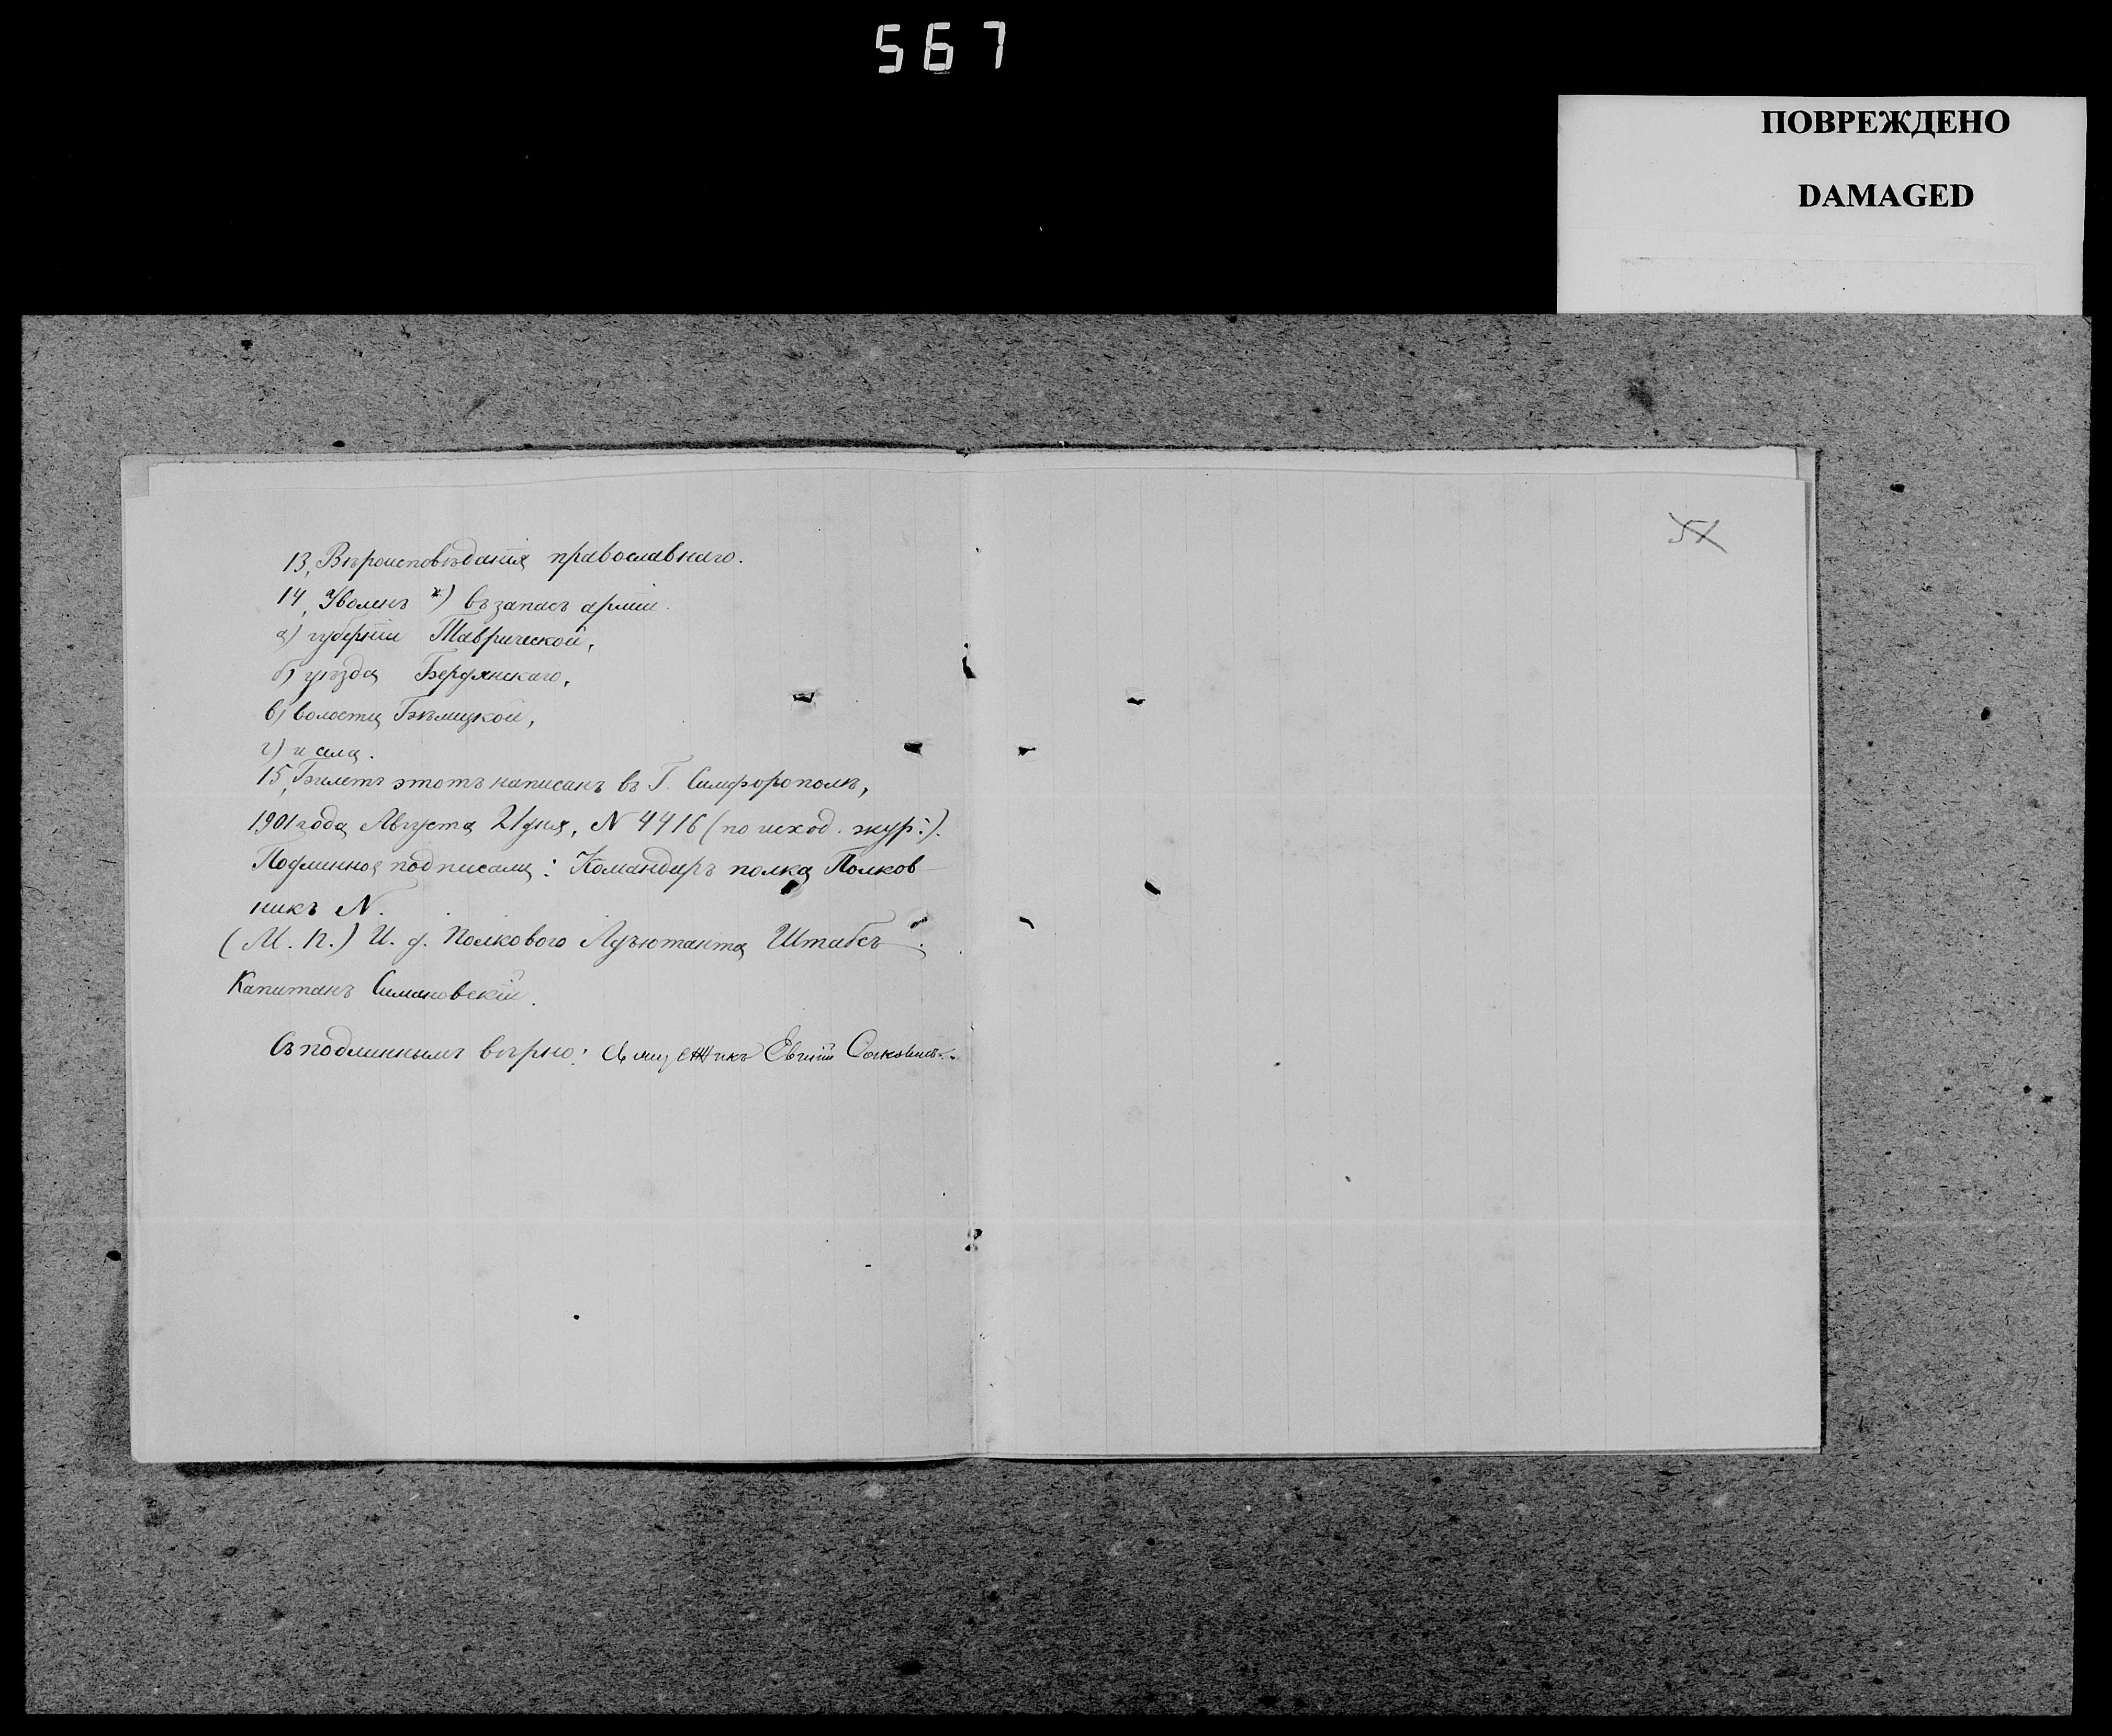 567
ПОВРЕЖДЕНО
DAMAGED
51
13, Вѣроисповѣданія православнаго.
14, Уволенъ *) въ запасъ арміи.
а) губерніи Таврической,
б) уѣзда Бердянскаго,
в) волости
г) и села.
15, Билетъ этотъ написанъ въ Г. Симфорополѣ,
1901 года Августа 21 дня, N 4416 (по исход. жур:).
Подлинное подписали: Командиръ полка Полков-
никъ N.
(М. П.) И. д. Полкового Адъютанта Штабсъ-
Капитанъ Симановскій.
Съ подлиннымъ вѣрно: Евгеній